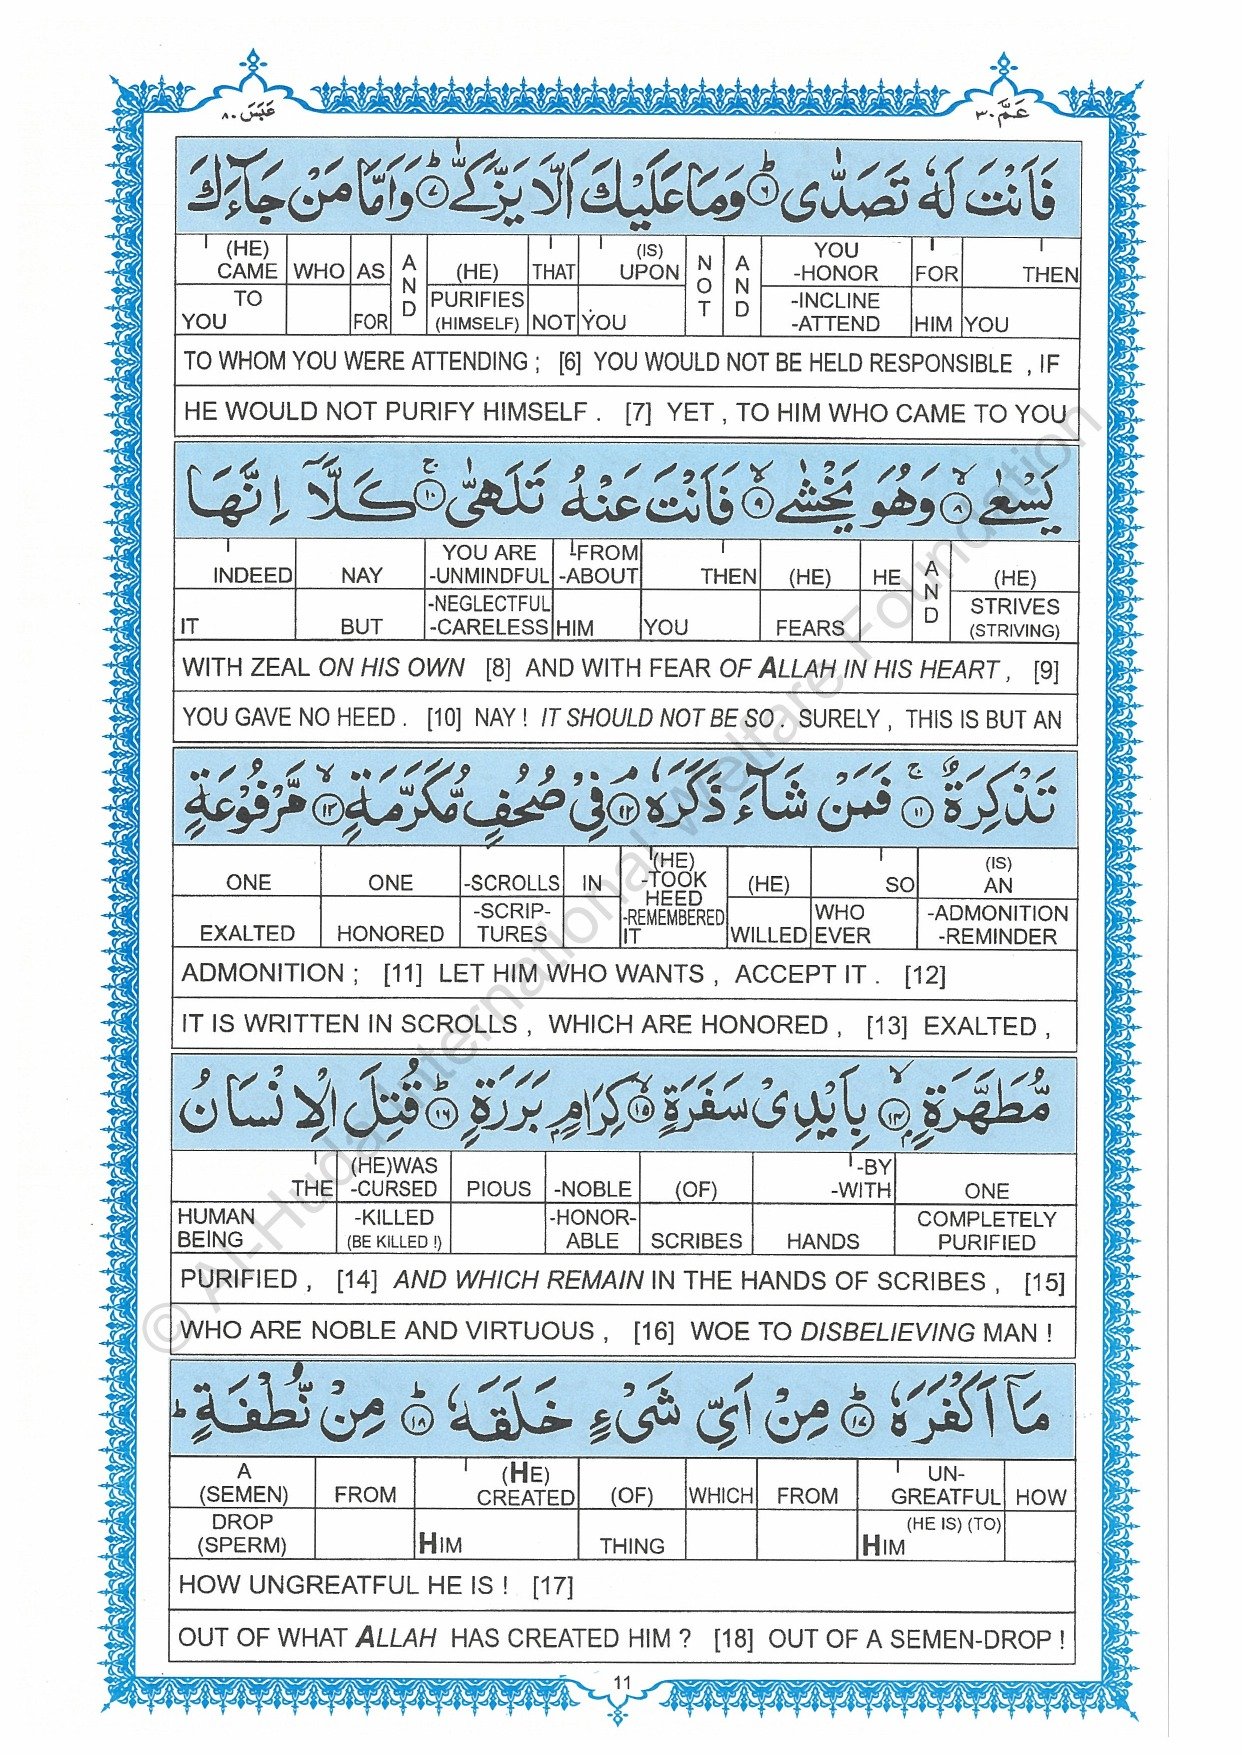 عَبَسَ ٨٠
عَمَّ ٣٠
فَاَنْتَ لَهٗ تَصَدّٰى ؕ ۶ وَمَا عَلَيْكَ اَلَّا يَزَّكّٰى ؕ ۷ وَاَمَّا مَنْ جَآءَكَ
(HE) CAME WHO AS AND (HE) THAT (IS) UPON NOT AND YOU -HONOR FOR THEN
TO YOU FOR PURIFIES (HIMSELF) NOT YOU -INCLINE -ATTEND HIM YOU
TO WHOM YOU WERE ATTENDING ; [6] YOU WOULD NOT BE HELD RESPONSIBLE , IF
HE WOULD NOT PURIFY HIMSELF . [7] YET , TO HIM WHO CAME TO YOU
يَسْعٰى ۙ ۸ وَهُوَ يَخْشٰى ۙ ۹ فَاَنْتَ عَنْهُ تَلَهّٰى ۚ ۱۰ كَلَّاۤ اِنَّهَا
INDEED NAY YOU ARE -UNMINDFUL -FROM -ABOUT THEN (HE) HE AND (HE)
IT BUT -NEGLECTFUL -CARELESS HIM YOU FEARS STRIVES (STRIVING)
WITH ZEAL ON HIS OWN [8] AND WITH FEAR OF ALLAH IN HIS HEART , [9]
YOU GAVE NO HEED . [10] NAY ! IT SHOULD NOT BE SO . SURELY , THIS IS BUT AN
تَذْكِرَةٌ ۚ ۱۱ فَمَنْ شَآءَ ذَكَرَهٗ ۘ ۱۲ فِيْ صُحُفٍ مُّكَرَّمَةٍ ۙ ۱۳ مَّرْفُوْعَةٍ
ONE ONE -SCROLLS IN (HE) -TOOK HEED (HE) SO (IS) AN
EXALTED HONORED -SCRIP- TURES -REMEMBERED IT WILLED WHO EVER -ADMONITION -REMINDER
ADMONITION ; [11] LET HIM WHO WANTS , ACCEPT IT . [12]
IT IS WRITTEN IN SCROLLS , WHICH ARE HONORED , [13] EXALTED ,
مُّطَهَّرَةٍ ۙ ۱۴ بِاَيْدِيْ سَفَرَةٍ ۙ ۱۵ كِرَامٍ بَرَرَةٍ ؕ ۱۶ قُتِلَ الْاِنْسَانُ
THE (HE)WAS -CURSED PIOUS -NOBLE (OF) -BY -WITH ONE
HUMAN BEING -KILLED (BE KILLED !) -HONOR- ABLE SCRIBES HANDS COMPLETELY PURIFIED
PURIFIED , [14] AND WHICH REMAIN IN THE HANDS OF SCRIBES , [15]
WHO ARE NOBLE AND VIRTUOUS , [16] WOE TO DISBELIEVING MAN !
مَاۤ اَكْفَرَهٗ ؕ ۱۷ مِنْ اَيِّ شَيْءٍ خَلَقَهٗ ؕ ۱۸ مِنْ نُّطْفَةٍ ؕ
A (SEMEN) FROM (HE) CREATED (OF) WHICH FROM UN- GREATFUL HOW
DROP (SPERM) HIM THING (HE IS) (TO) HIM
HOW UNGREATFUL HE IS ! [17]
OUT OF WHAT ALLAH HAS CREATED HIM ? [18] OUT OF A SEMEN-DROP !
11
© Al-Huda International Welfare Foundation